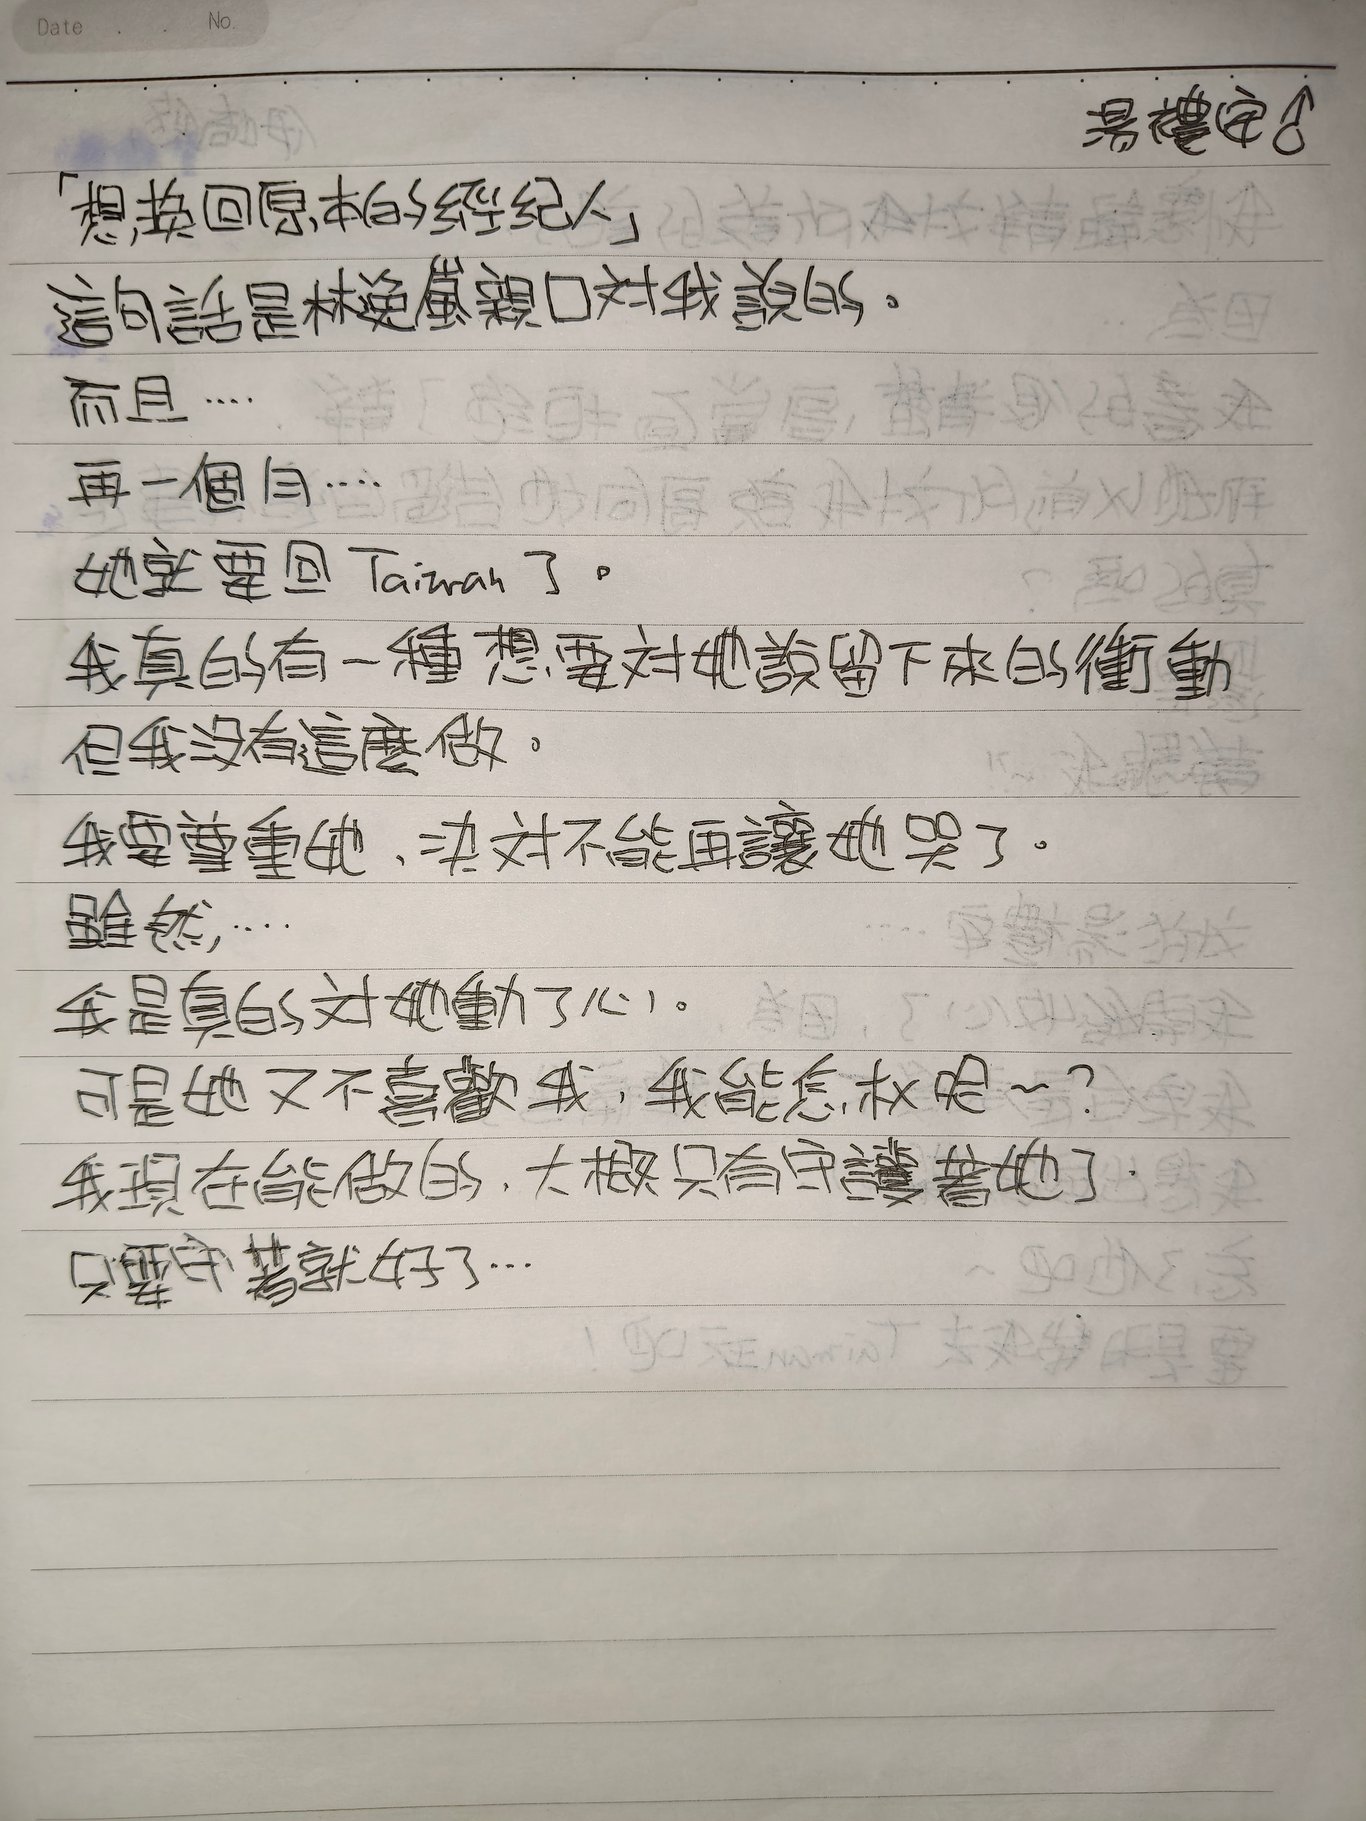 Date . . No.
湯禮安♂
「想換回原本的經紀人」
這句話是林逸嵐親口對我說的。
而且‧‧‧‧
再一個月‧‧‧‧
她就要回Taiwan了。
我真的有一種想要对她說留下來的衝動
但我沒有這麼做。
我要尊重她、決对不能再讓她哭了。
雖然,‧‧‧‧
我是真的对她動了心。
可是她又不喜歡我,我能怎麽呢～？
我現在能做的,大概只有守護著她了.
只要守著就好了‧‧‧